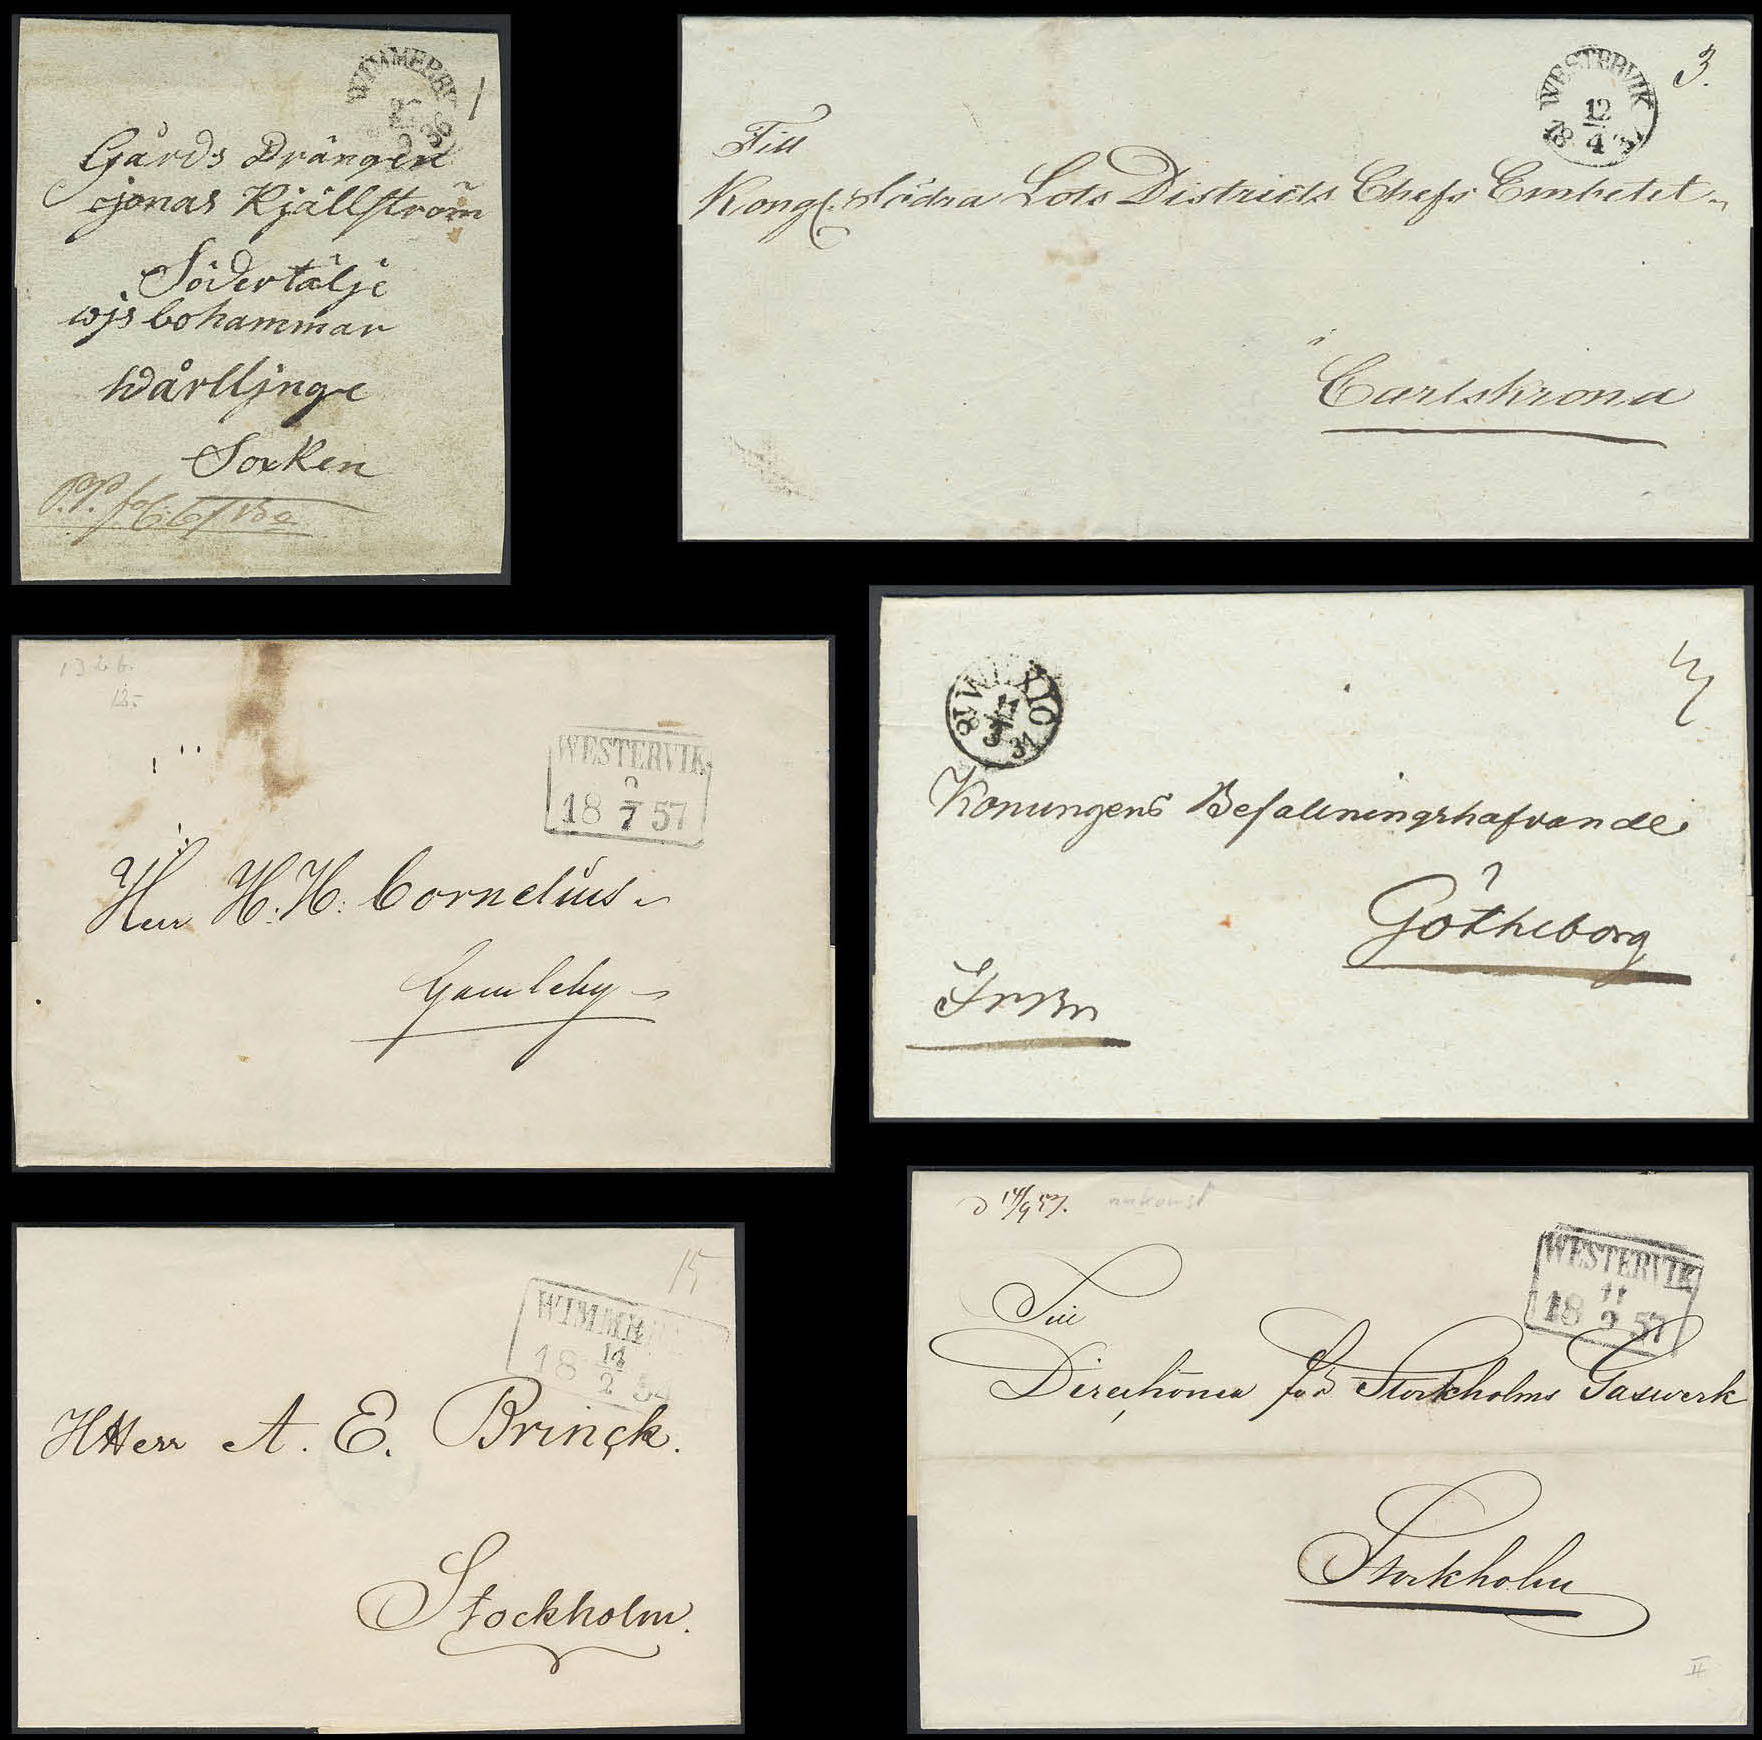 WIMMERBY
1
Gårds Drängen
Jonas Kjällström
Södertälje
wjsbohammar
Wårlljnge
Sorken
P.P.
WESTERVIK
12
18 4
3.
Till
Kongl. Södra Lots Districts Chefs Embetet
i
Carlskrona
WESTERVIK
18 7 57
Herr H. H. Cornelius
Gamleby
WEXIO
18 31
Konungens Befallningshafvande
Götheborg
WIMMER
14
18 2 54
15
HHerr A. E. Brinck.
Stockholm.
14/9 57.
ankomst
WESTERVIK
11
18 9 57
Till
Directionen för Stockholms Gaswerk
Stockholm
II